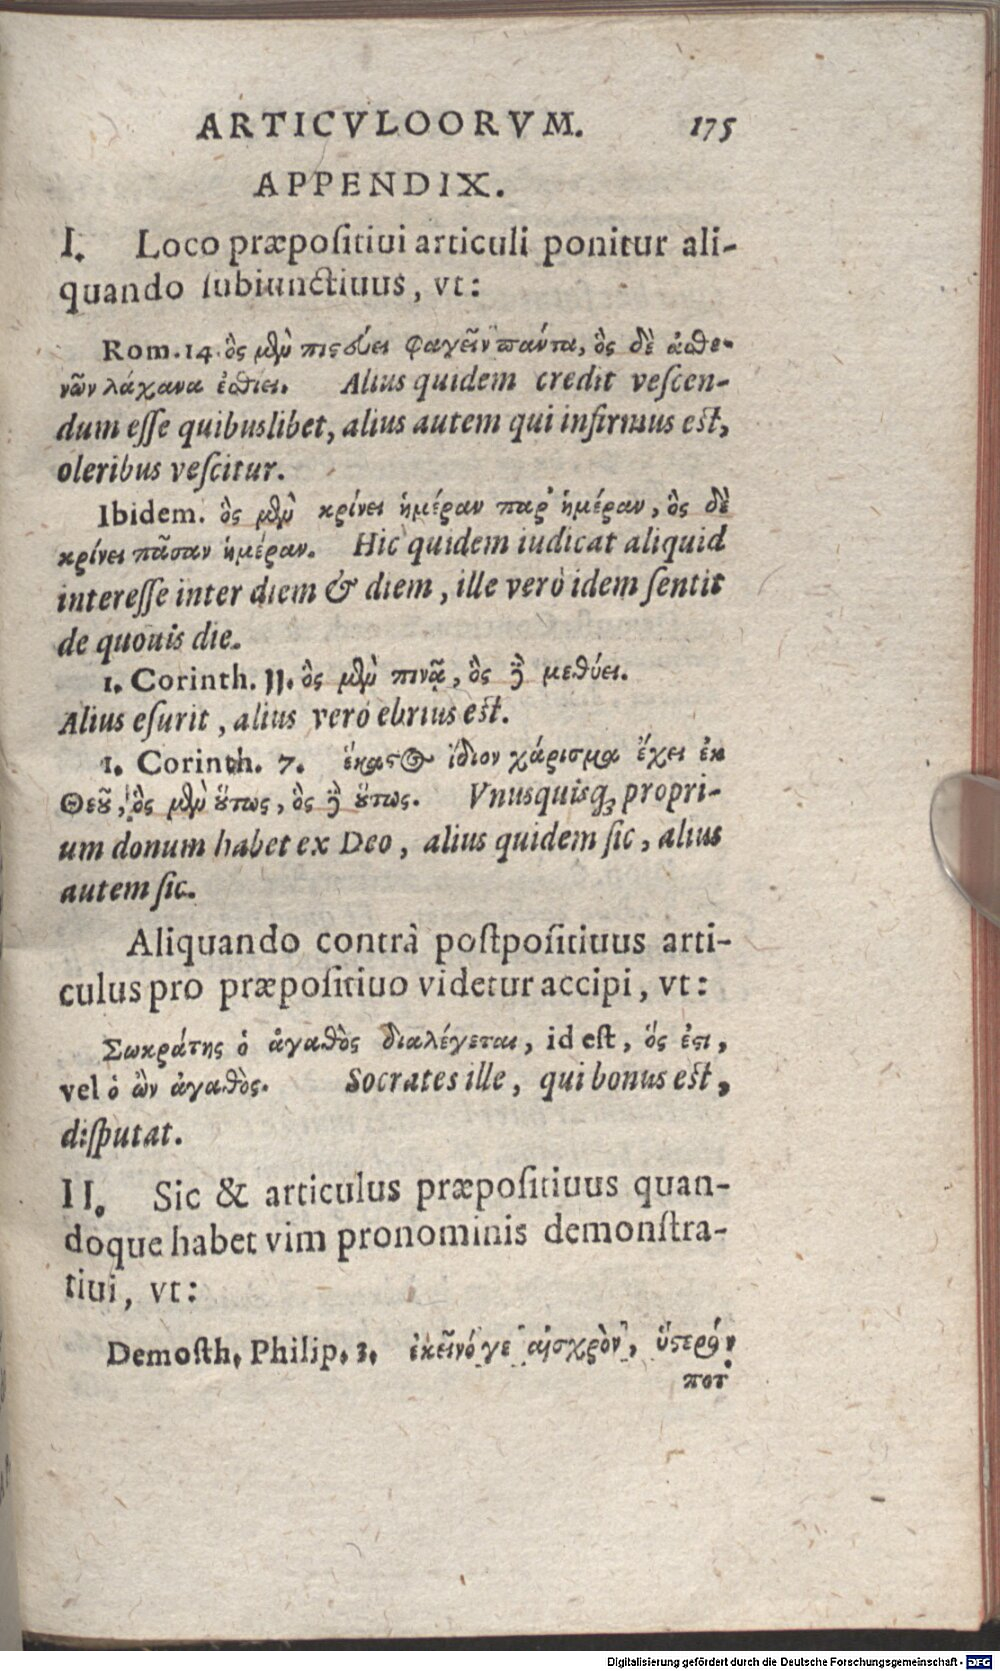 ARTICVLOORVM. 175
APPENDIX.
I. Loco præpoſitiui articuli ponitur ali-
quando ſubiunctiuus, vt:
Rom. 14. ὃς μὲν πιςεύει φαγεῖν πάντα, ὃς δὲ ἀσθε-
νῶν λάχανα ἐσθίει. Alius quidem credit veſcen-
dum eſſe quibuslibet, alius autem qui infirmus est,
oleribus veſcitur.
Ibidem. ὃς μὲν κρίνει ἡμέραν παρ' ἡμέραν, ὃς δὲ
κρίνει πᾶσαν ἡμέραν. Hic quidem iudicat aliquid
intereſſe inter diem & diem, ille verò idem ſentit
de quouis die.
1. Corinth. 11. ὃς μὲν πινᾷ, ὃς δὲ μεθύει.
Alius eſurit, alius verò ebrius est.
1. Corinth. 7. ἕκαςος ἴδιον χάρισμα ἔχει ἐκ
Θεοῦ, ὃς μὲν οὕτως, ὃς δὲ οὕτως. Vnusquisq; propri-
um donum habet ex Deo, alius quidem ſic, alius
autem ſic.
Aliquando contrà poſtpoſitiuus arti-
culus pro præpoſitiuo videtur accipi, vt:
Σωκράτης ὁ ἀγαθὸς διαλέγεται, id est, ὅς ἐςι,
vel ὁ ὢν ἀγαθὸς. Socrates ille, qui bonus est,
diſputat.
II. Sic & articulus præpoſitiuus quan-
doque habet vim pronominis demonſtra-
tiui, vt:
Demoſth. Philip. 3. ἐκεῖνό γε αἰσχρὸν, ὕςερόν
ποτ'
Digitalisierung gefördert durch die Deutsche Forschungsgemeinschaft - DFG